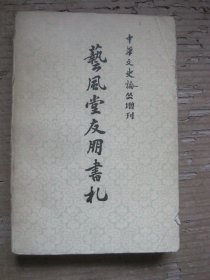 中華文史論丛增刊
藝風堂友朋書札